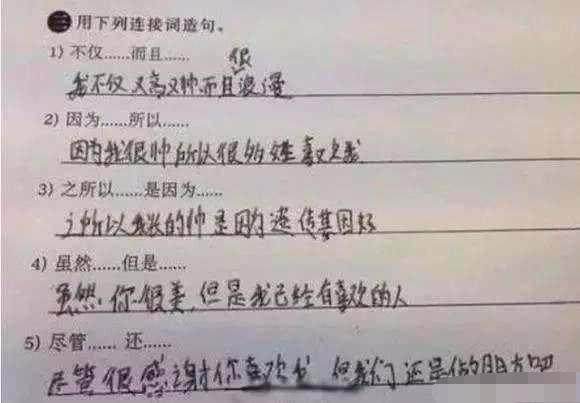 三 用下列连接词造句。
1) 不仅……而且……
我不仅又高又帅而且很浪漫
2) 因为……所以……
因为我很帅所以很多女生喜欢我
3) 之所以……是因为……
之所以我长的帅是因为遗传基因好
4) 虽然……但是……
虽然你很美,但是我已经有喜欢的人
5) 尽管……还……
尽管很感谢你喜欢我 但我们还是做朋友吧